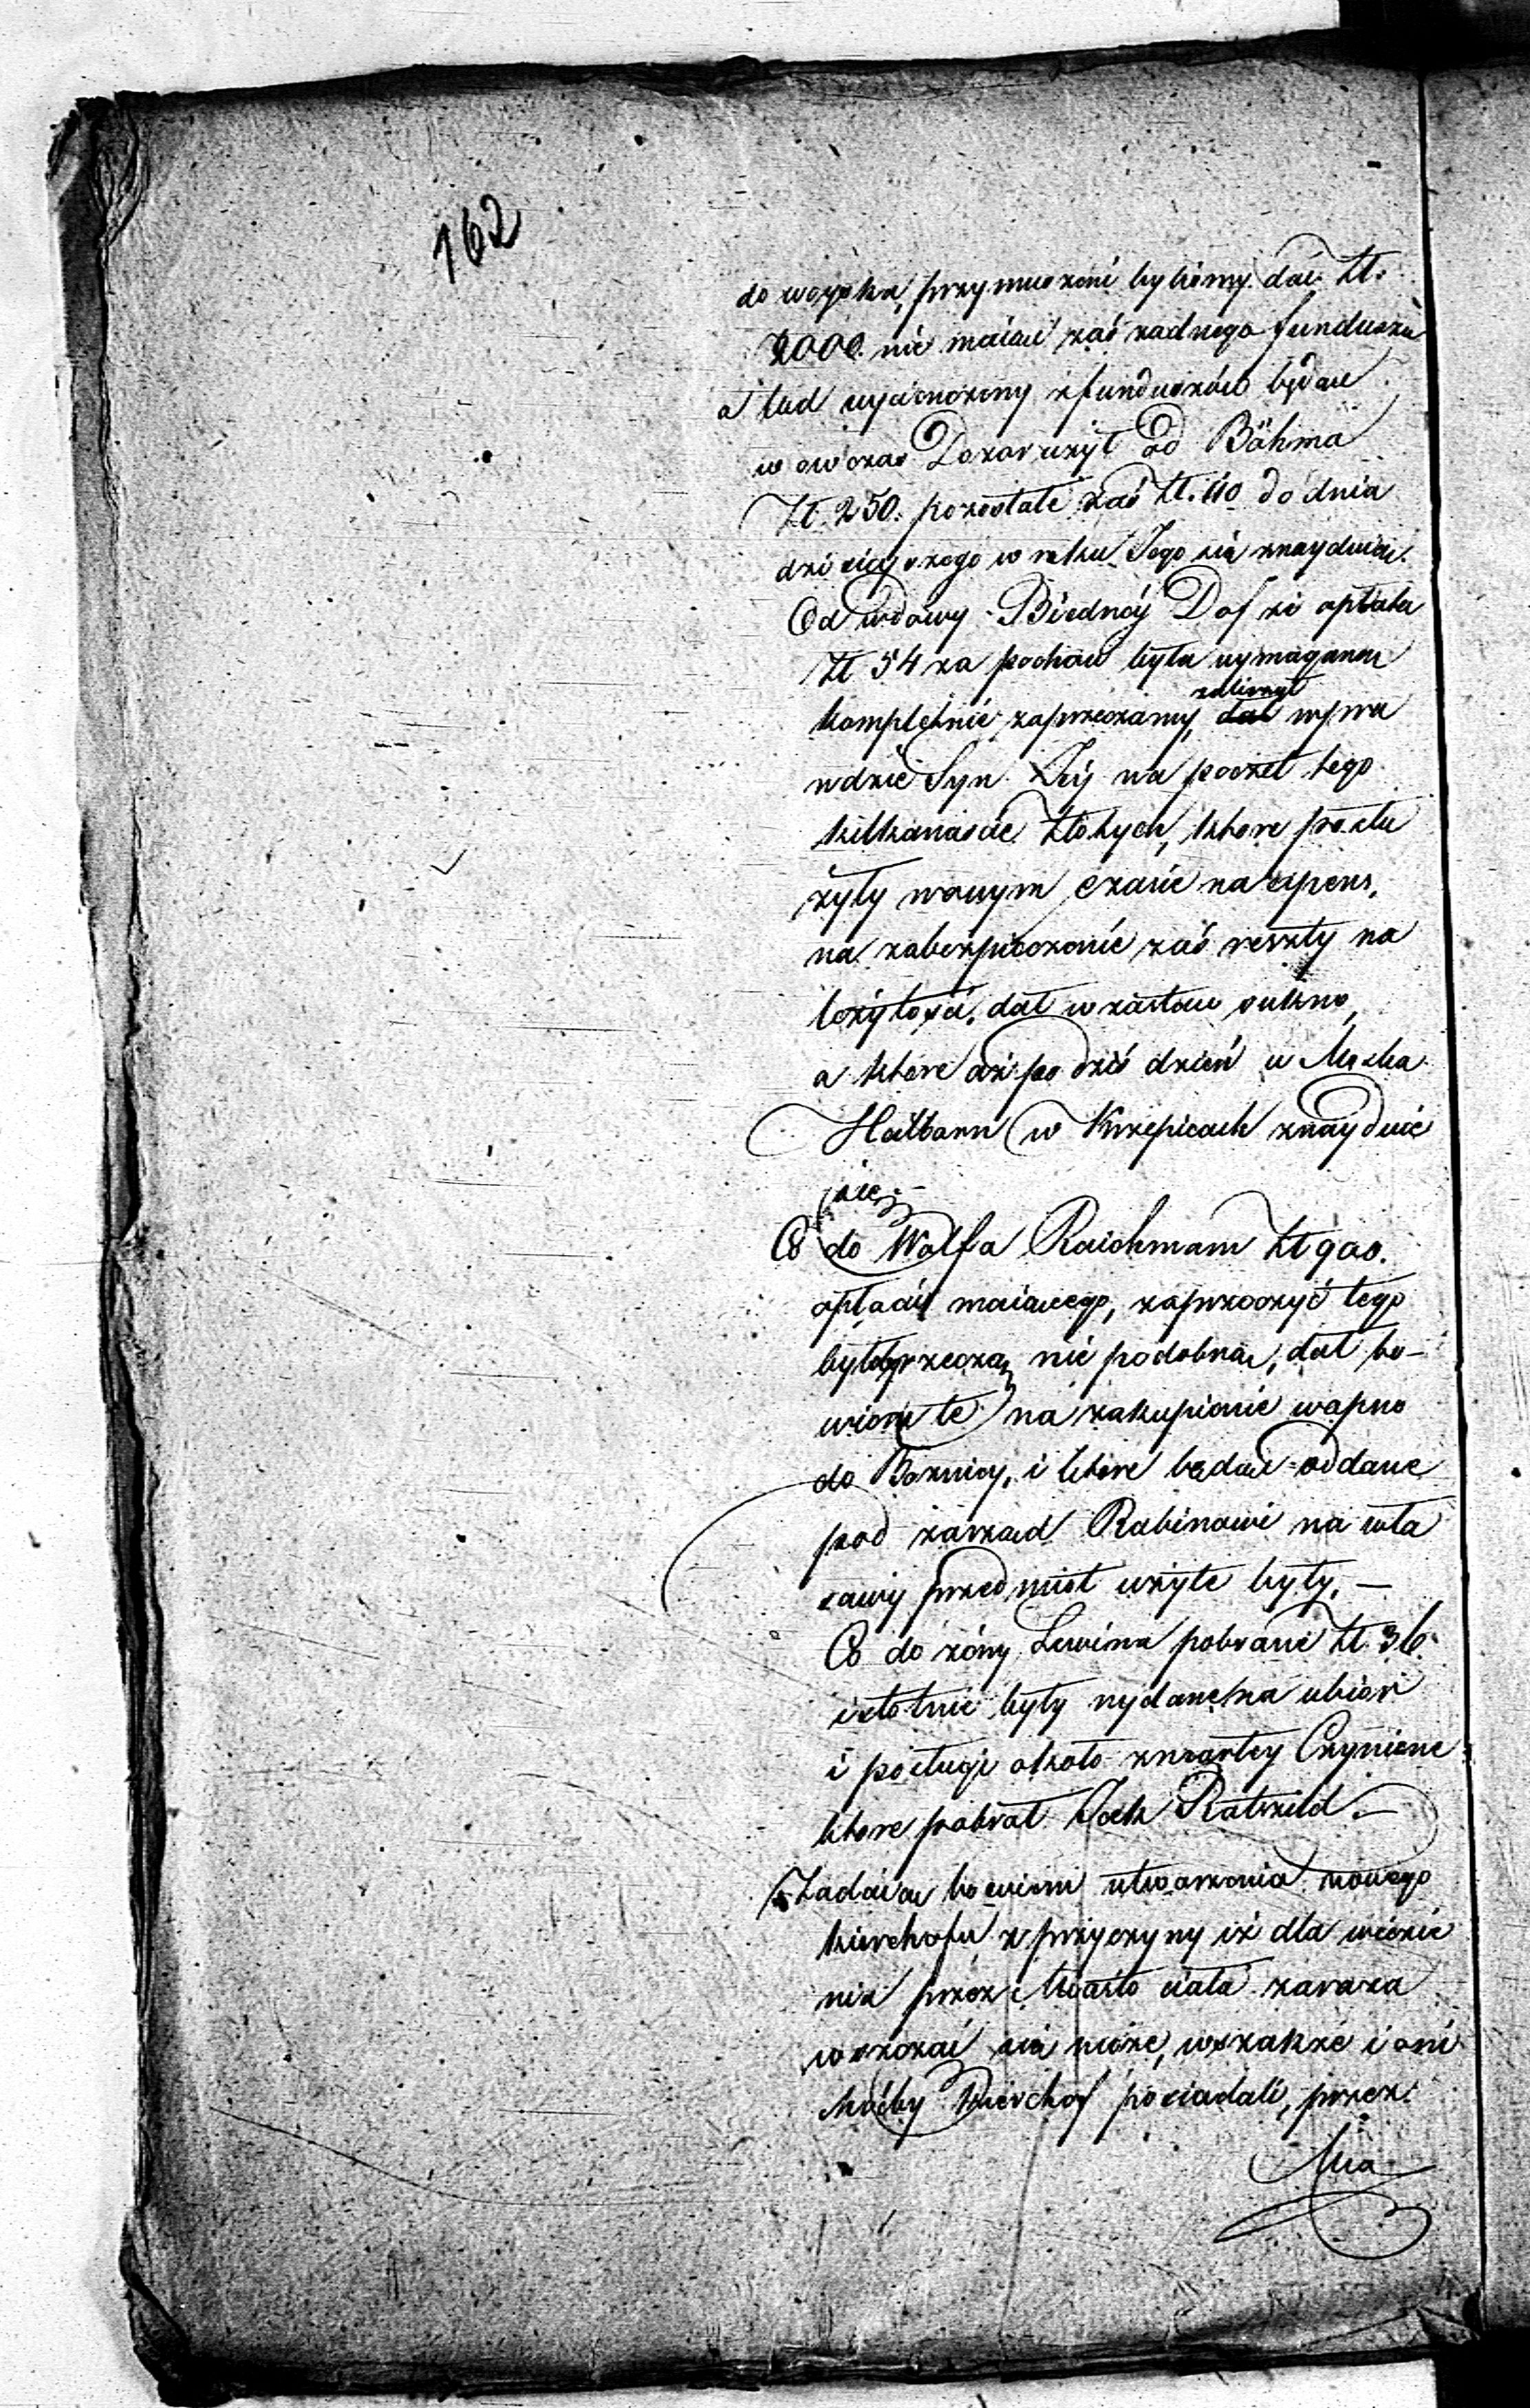 162
do woyska, przymuszeni byliśmy dać Zł.
2000. nie maiąc zaś żadnego funduszu
a lud wycieńczony z funduszów będąc
w ów czas Dozor użył od Böhma
Zł. 250. pozostałe zaś Zł. 110 do dnia
dzisieyszego w ręku Jego się znayduią.
Od wdowy Biednéy Dof że opłata
Zł 54 za pochow była wymaganą
kompletnie zaprzeczamy, dał zaliczył wpra
wdzie Syn Jéy na poczet tego
kilkanaście Złotych, które posłu
żyły w owym czasie na expens,
na zabezpieczenie zaś reszty na
leżytości, dał w zastaw sukno,
a które aż po dziś dzień u Moska
w Krzepicach znayduie
się.
Co do Wolfa Raichmam Zł 900.
opłacić maiącego, zaprzeczyć tego
byłoby rzeczą nie podobną, dał bo-
wiem te na zakupienie wapno
do Boznicy, i które będąc oddane
pod zarząd Rabinowi na wła
sciwy przedmiot użyte były. —
Co do żony Lewina pobrane Zł. 36.
istotnie były wydane na ubiór
i posługi około zmarłey Czynione
które pobrał Jcek Ratszild. —
Żądaią bowiem utworzenia nowego
kierchofu z przyczyny iż dla wiezie
nia przez Miasto ciała zaraza
wszcząć się może, wszakże i oni
choćby Kierchof posiadali, przez
Mia